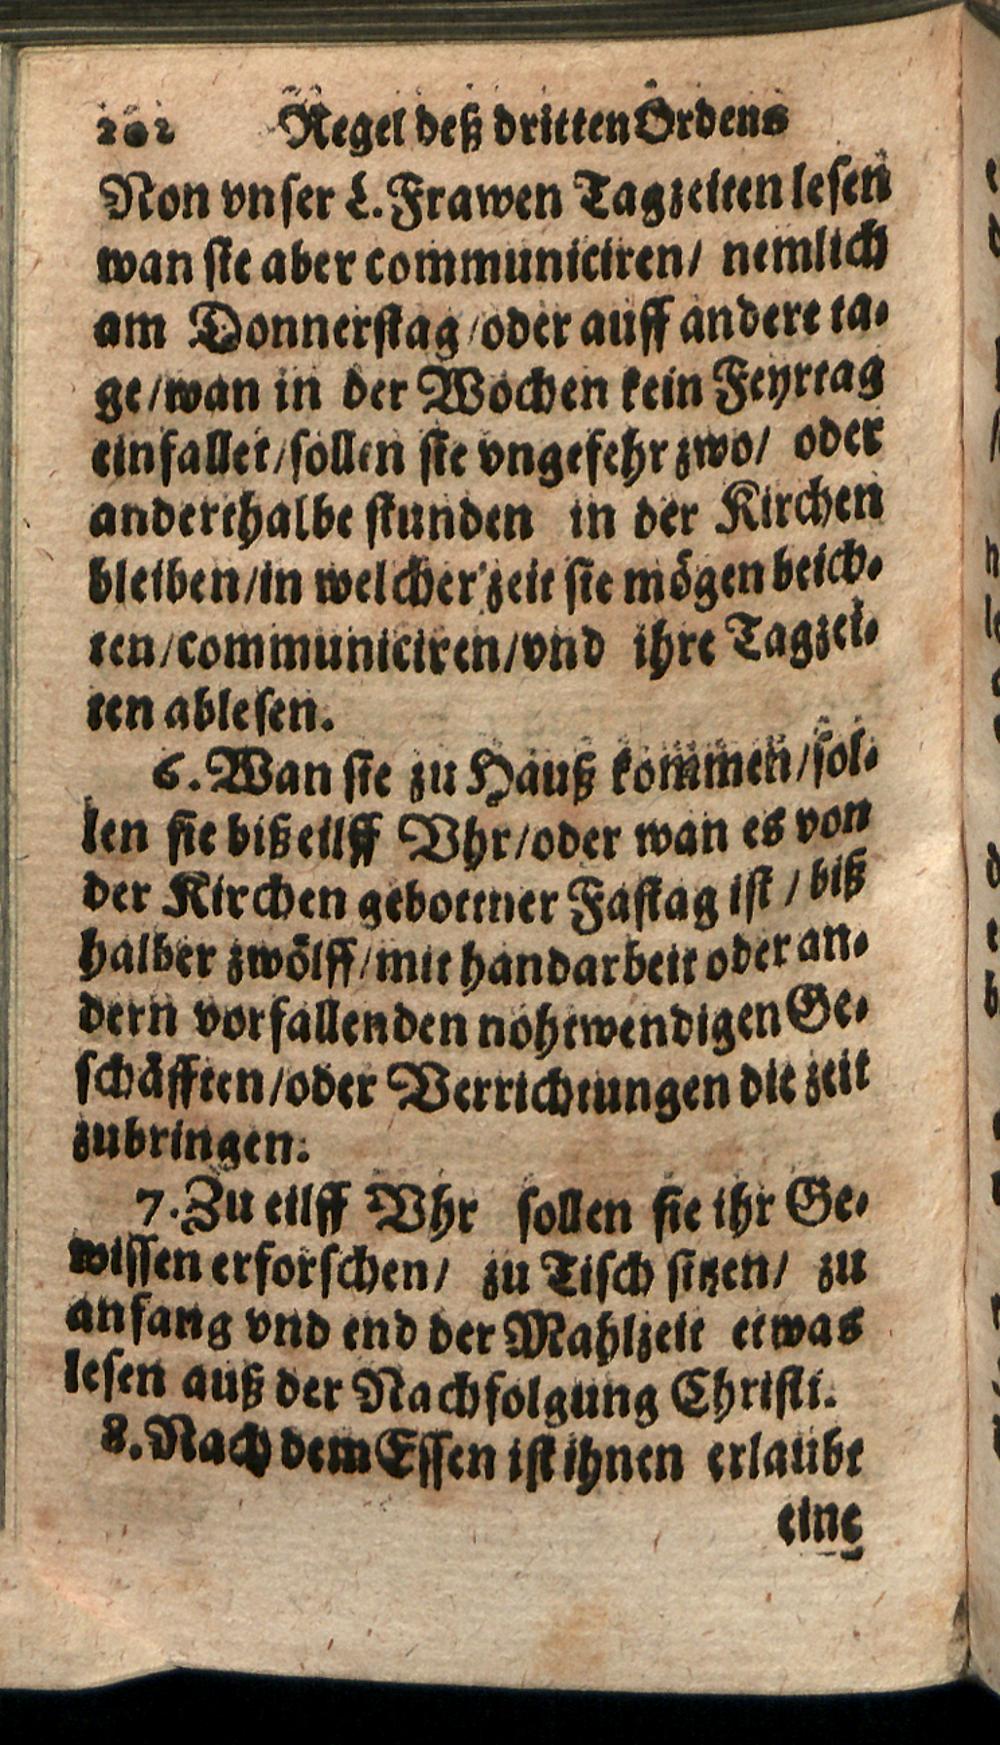 202 Regel deß dritten Ordens
Non vnser L. Frawen Tagzeiten lesen
wan sie aber communiciren/ nemlich
am Donnerstag/oder auff andere ta-
ge/wan in der Wochen kein Feyrtag
einfallet/sollen sie vngefehr zwo/ oder
anderthalbe stunden in der Kirchen
bleiben/in welcher zeit sie mögen beich-
ten/communiciren/vnd ihre Tagzei-
ten ablesen.
6. Wan sie zu Hauß kommen/sol-
len sie biß eilff Vhr/oder wan es von
der Kirchen gebottner Fastag ist/biß
halber zwölff/mit handarbeit oder an-
dern vorfallenden nohtwendigen Ge-
schäfften/oder Verrichtungen die zeit
zubringen.
7. Zu eilff Vhr sollen sie ihr Ge-
wissen erforschen/ zu Tisch sitzen/ zu
anfang vnd end der Mahlzeit etwas
lesen auß der Nachfolgung Christi.
8. Nach dem Essen ist ihnen erlaubt
eine